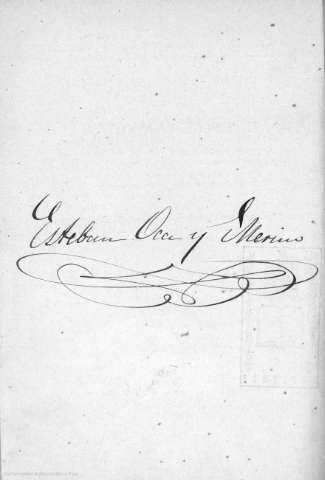 Esteban Oca y Merino